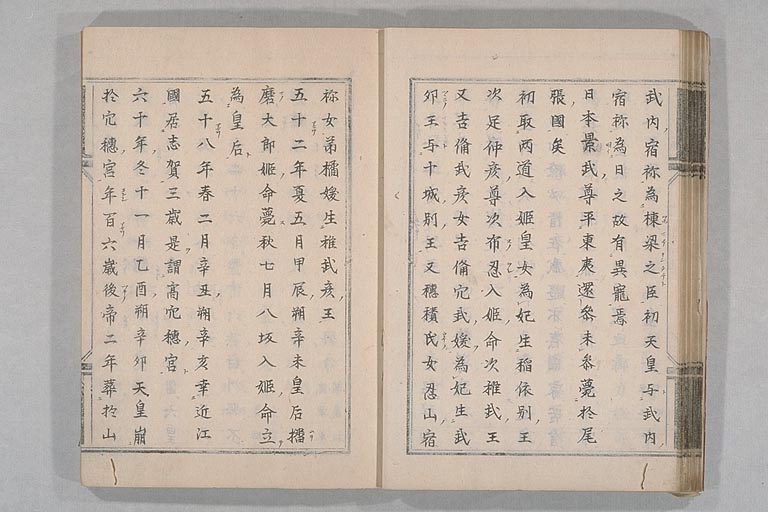 武内宿祢為棟梁之臣初天皇与武内
宿祢為日之故有異寵焉
日本最武尊平東夷還参未参薨於尾
張國矣
初取両道入姫皇女為妃生稲依別王
次足仲彦尊次布忍入姫命次稚武王
又吉備武彦女吉備穴武媛為妃生武
卵王与十城別王又穂積氏女忍山宿
祢女弟橘媛生稚武彦王
五十二年夏五月甲辰朔辛未皇后播
磨大郎姫命薨秋七月八坂入姫命立
為皇后
五十八年春二月辛丑朔辛亥幸近江
國居志賀三歳是謂高穴穂宮
六十年冬十一月乙酉朔辛卯天皇崩
於穴穂宮年百六歳後帝二年葬於山